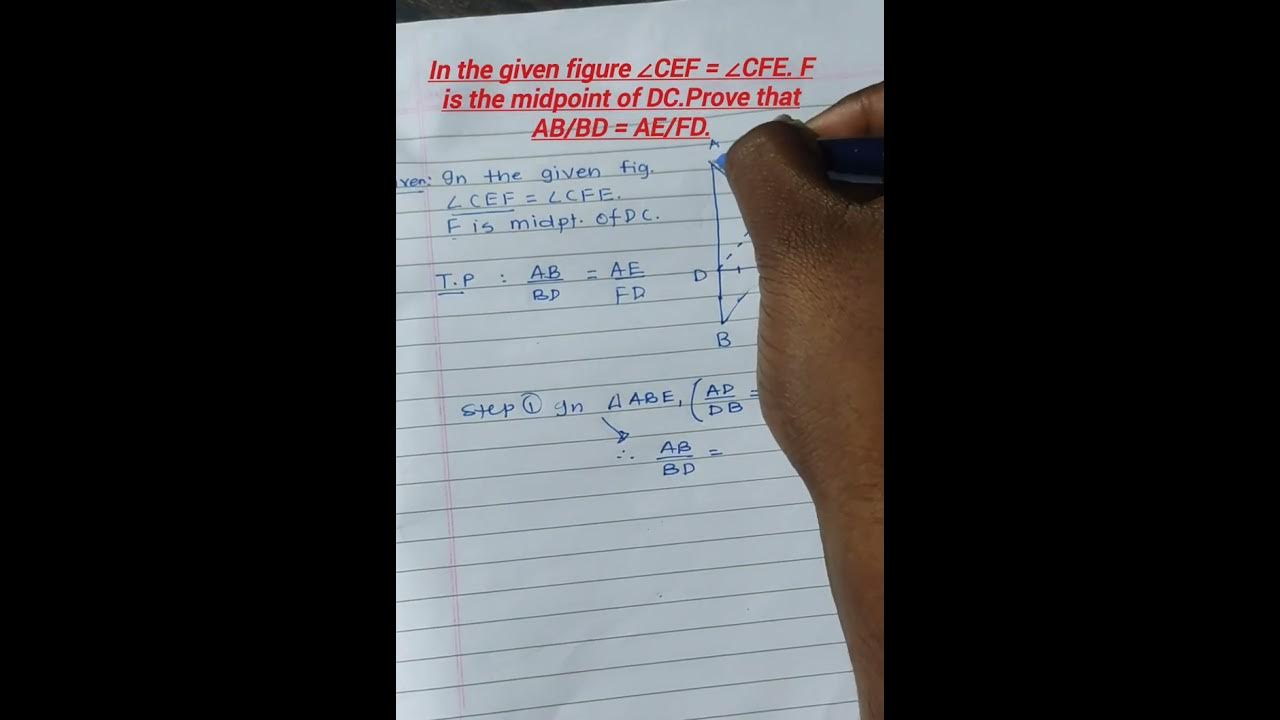 In the given figure ∠CEF = ∠CFE. F
is the midpoint of DC.Prove that
AB/BD = AE/FD.
ven: In the given fig.
∠CEF = ∠CFE.
F is midpt. of DC.
T.P : AB/BD = AE/FD
A
D
B
Step ① In △ABE, (AD/DB =
∴ AB/BD =